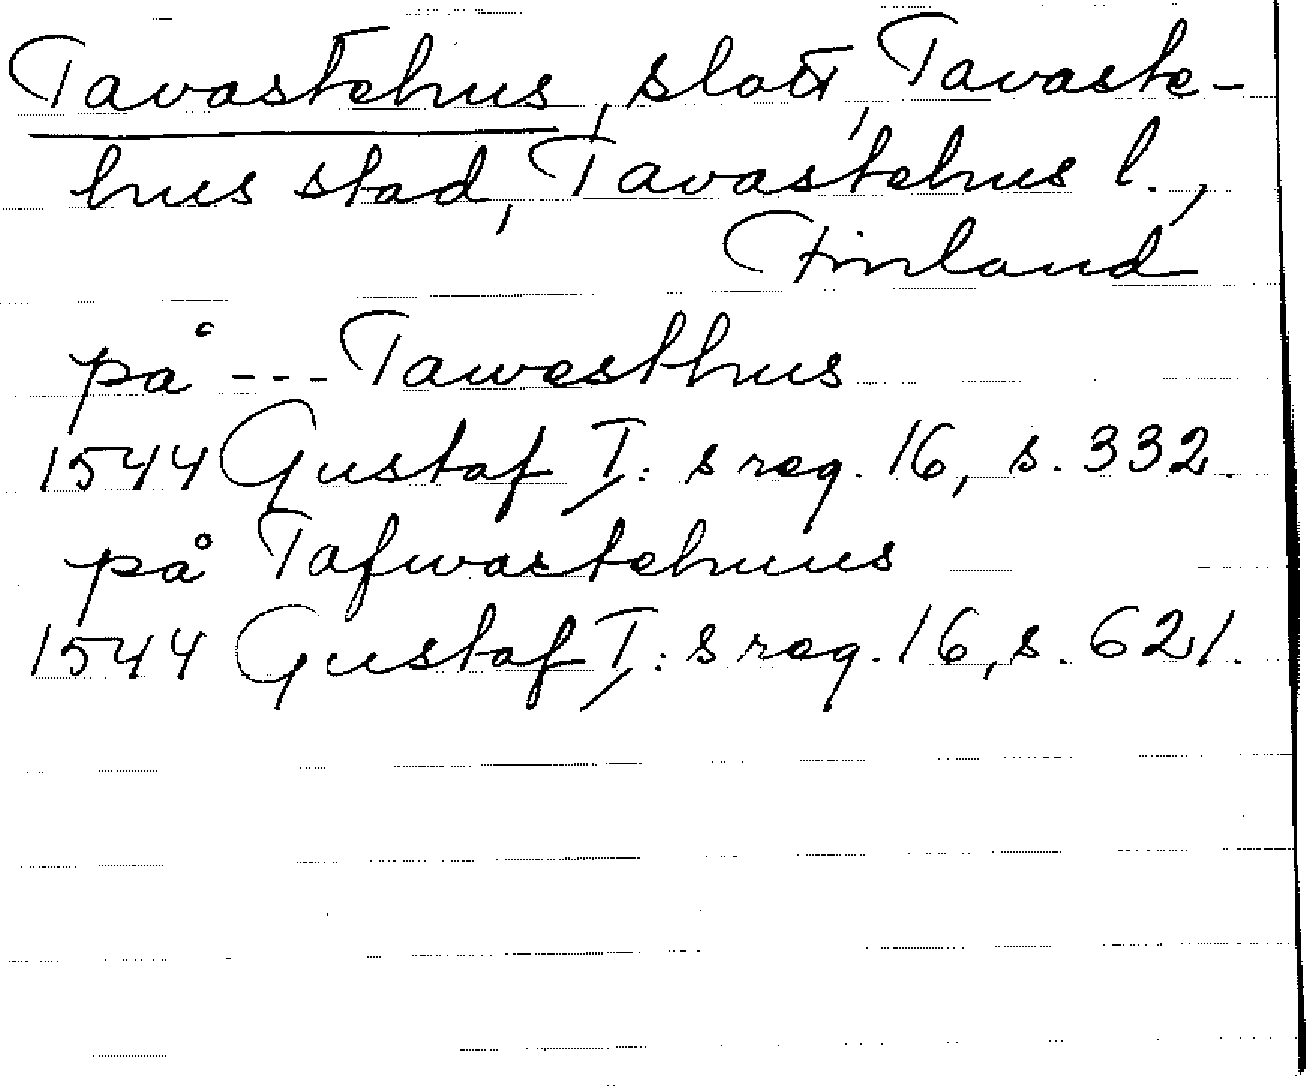 Tavastehus, slott, Tavaste-
hus stad, Tavastehus l.,
Finland
på --- Tawesthus
1544 Gustaf I:s reg. 16, s. 332.
på Tafwastehuus
1544 Gustaf I:s reg. 16, s. 621.